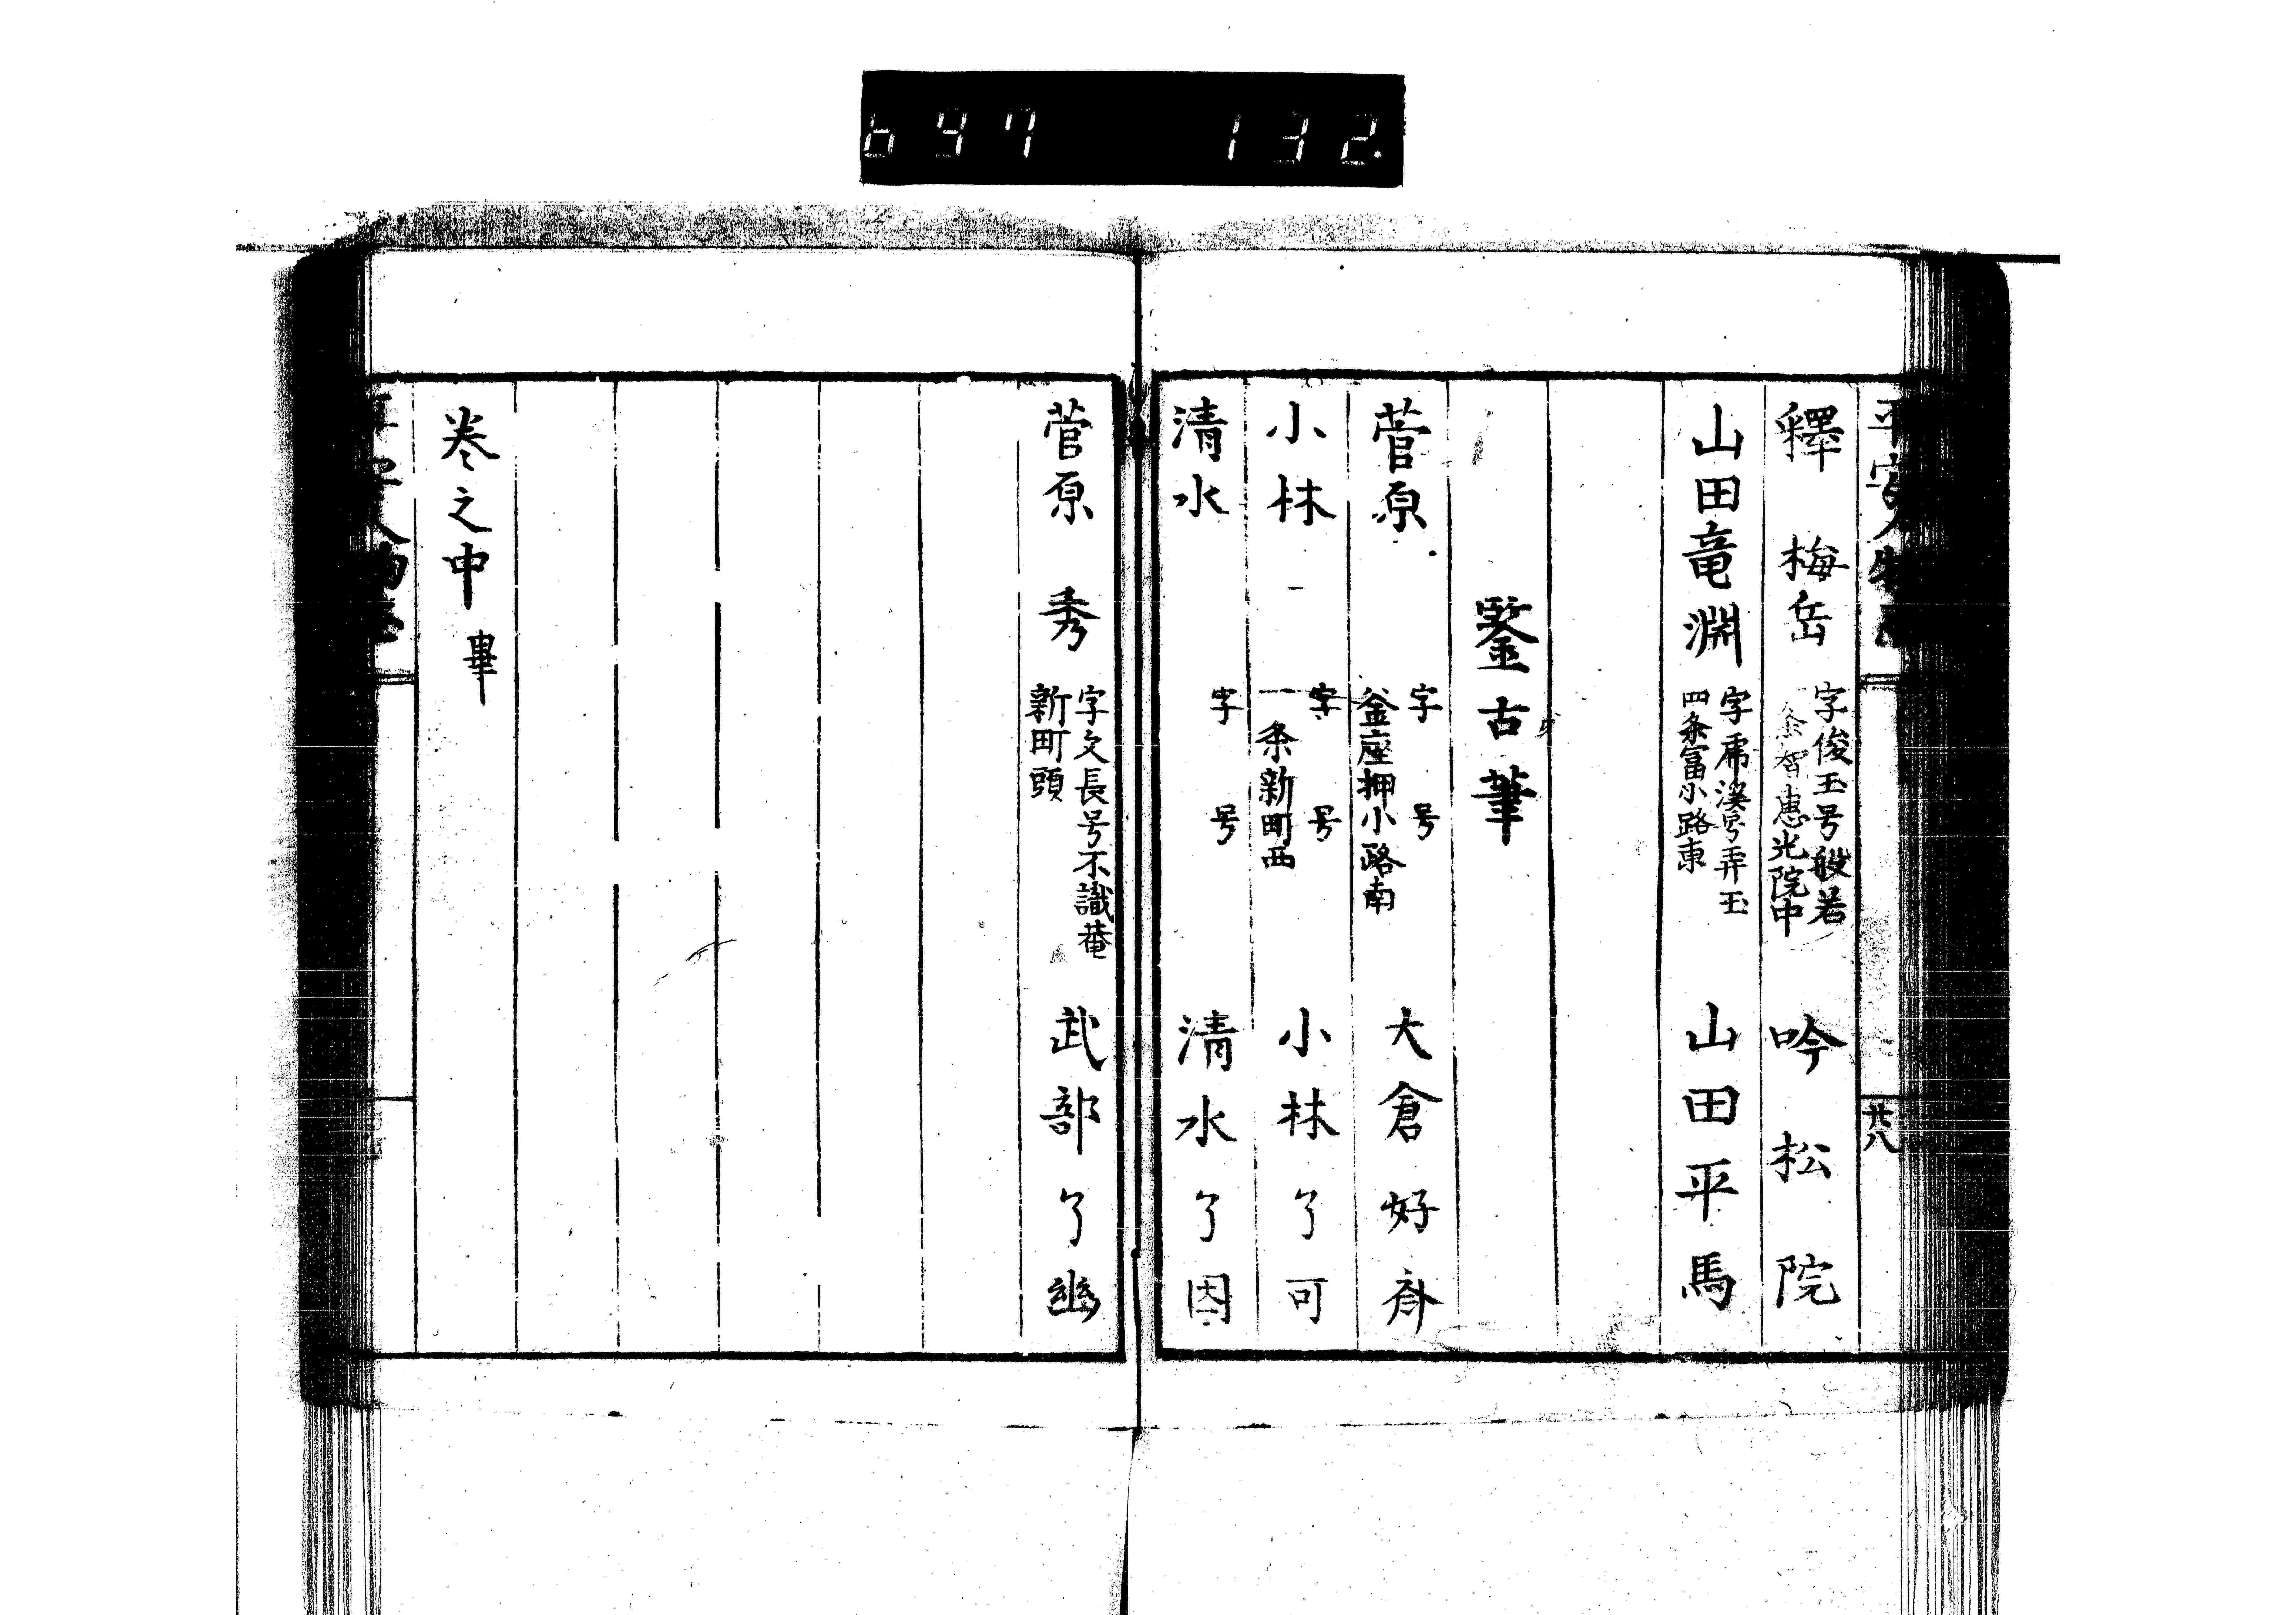 647 132
平安人物志
廿八
釋 梅岳 字俊玉号般若 智惠光院中 吟松院
山田竜淵 字乕溪号弄玉 四条富小路東 山田平馬
鑒古筆
菅原 字 号 釜座押小路南 大倉好斎
小林 字 号 一条新町西 小林了可
清水 字 号 清水了因
菅原 秀 字文長号不識菴 新町頭 武部了幽
巻之中 畢